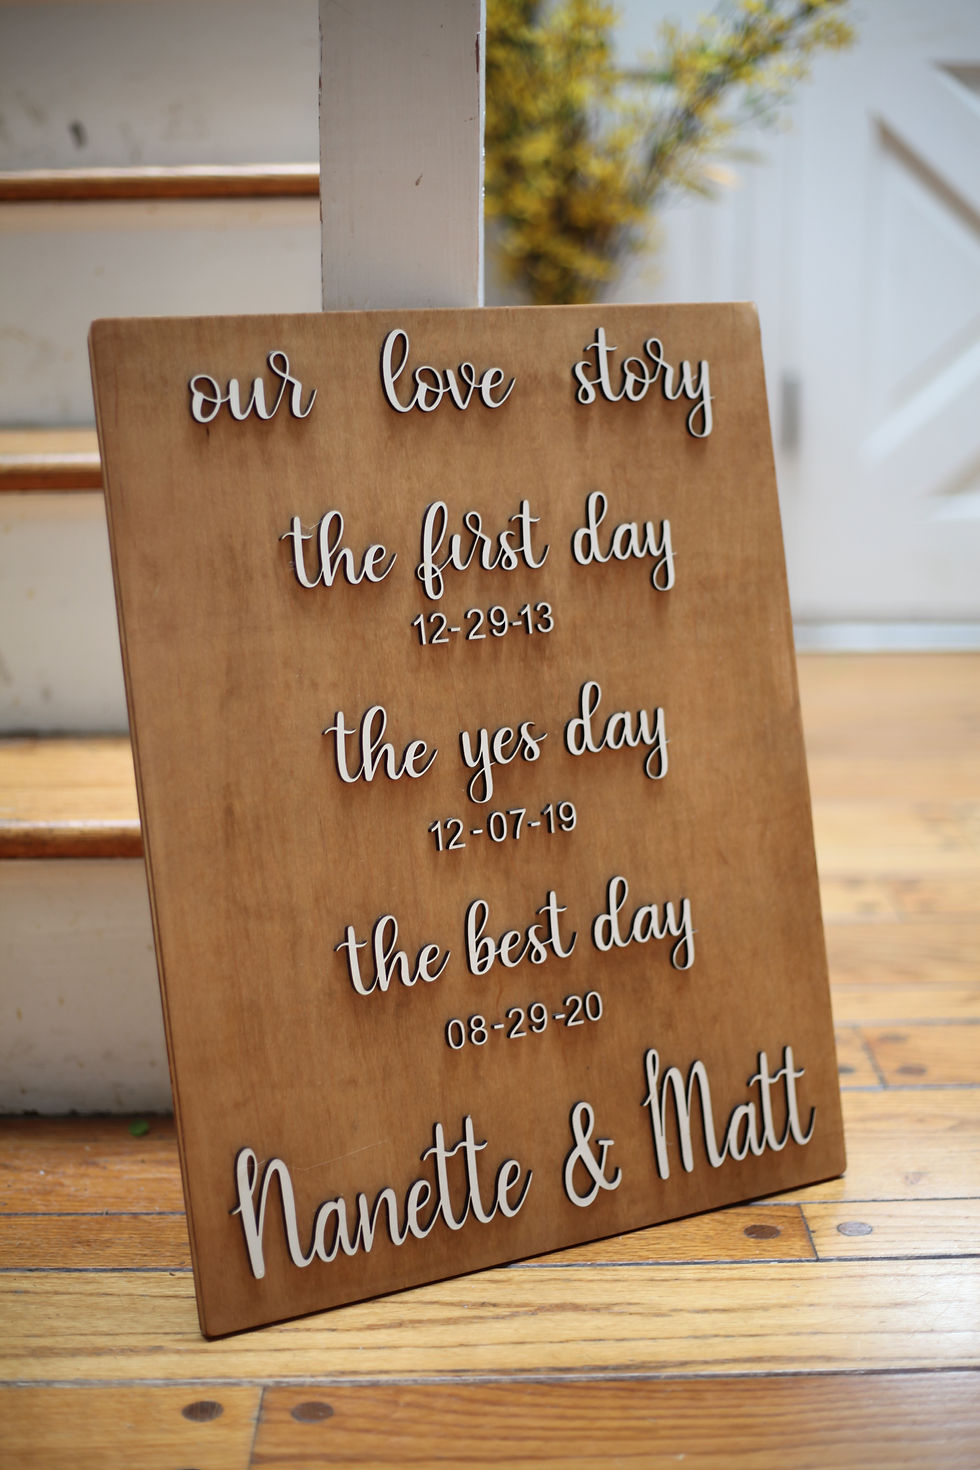 our love story
the first day
12-29-13
the yes day
12-07-19
the best day
08-29-20
Nanette & Matt